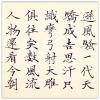 遜風騷一代天
驕成吉思汗只
識彎弓射大雕
俱往矣數風流
人物還看今朝